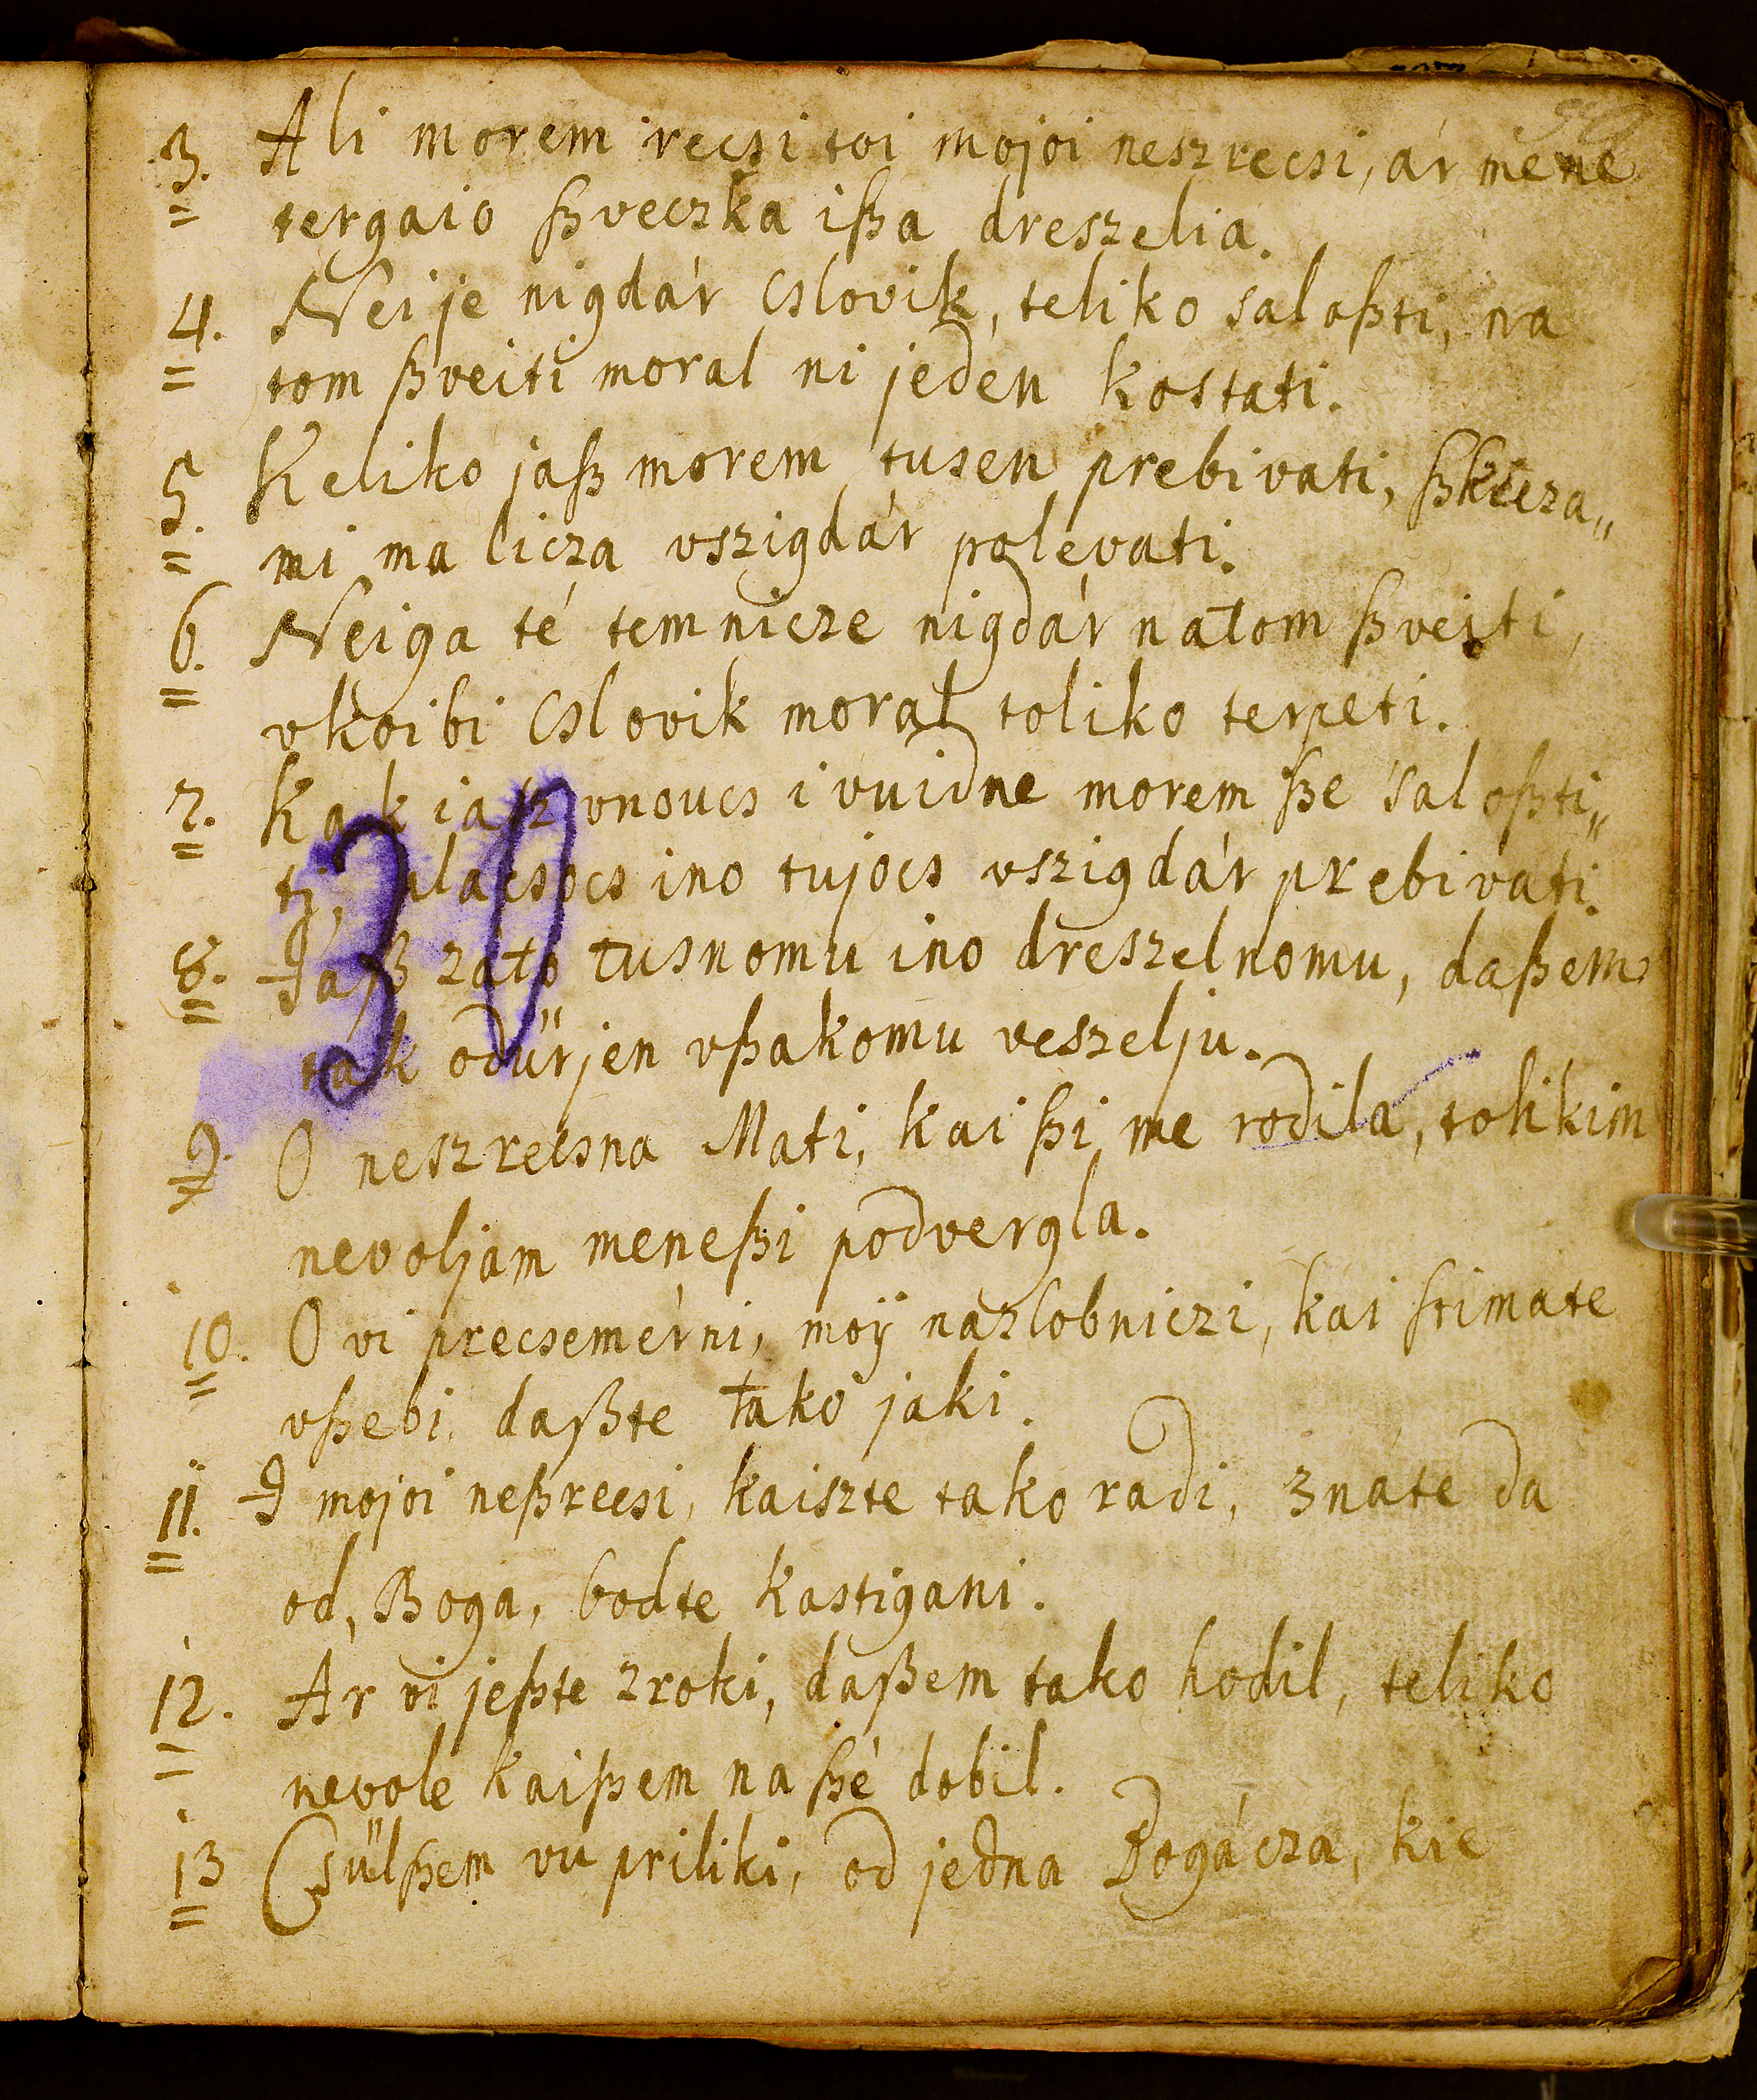 3. Ali morem recsi toi mojoi neszrecsi, ár mene
tergaio ßveczka ißa dreszelia.
4. Nei je nigdár Cslovik, teliko saloßti, na
tom ßveiti moral ni jeden kostati.
5. Keliko jaß morem tusen prebivati,
mi ma licza vszigdár polevati.
6. Neiga té temnicze nigdár natom ßveiti,
vkoibi Cslovik moral toliko terpeti.
7. Kak iaß vnoucs i vuidne morem ße saloßti„
ti, placsocs ino tujocs vszigdár prebivati.
30
8. Jaß zato tusnomu ino dreszelnomu, daßem
tak odürjen vßakomu veszelju.
9. O neszrecsna Mati, kai ßi me rodila, tolikim
nevoljam meneßi podvergla.
10. O vi precsemérni, moÿ nazlobniczi, kai stimate
vßebi, daßte tako jaki.
11. I mojoi neßrecsi, kaiszte tako radi, znáte da
od, Boga, bodte kastigani.
12. Ar vi jeßte zroki, daßem tako hodil, teliko
nevole kaißem na ßé dobil.
13 Csülßem vu priliki, od jedna Bogácza, kie